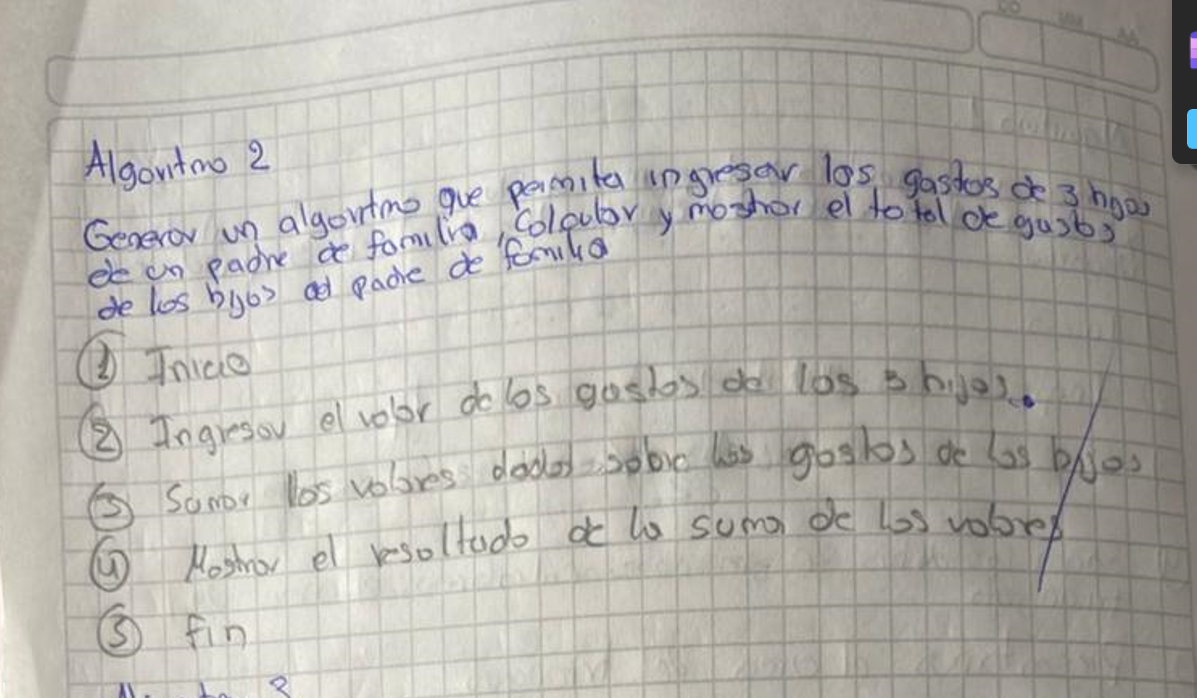 Algoritmo 2
Generar un algoritmo que permita ingresar los gastos de 3 hijos
de un padre de familia, Calcular y mostrar el total de gastos
de los hijos del padre de familia
1 Inicio
2 Ingresar el valor de los gastos de los 3 hijos.
3 Sumar los valores dados sobre los gastos de los hijos
4 Mostrar el resultado de la suma de los valores
5 fin